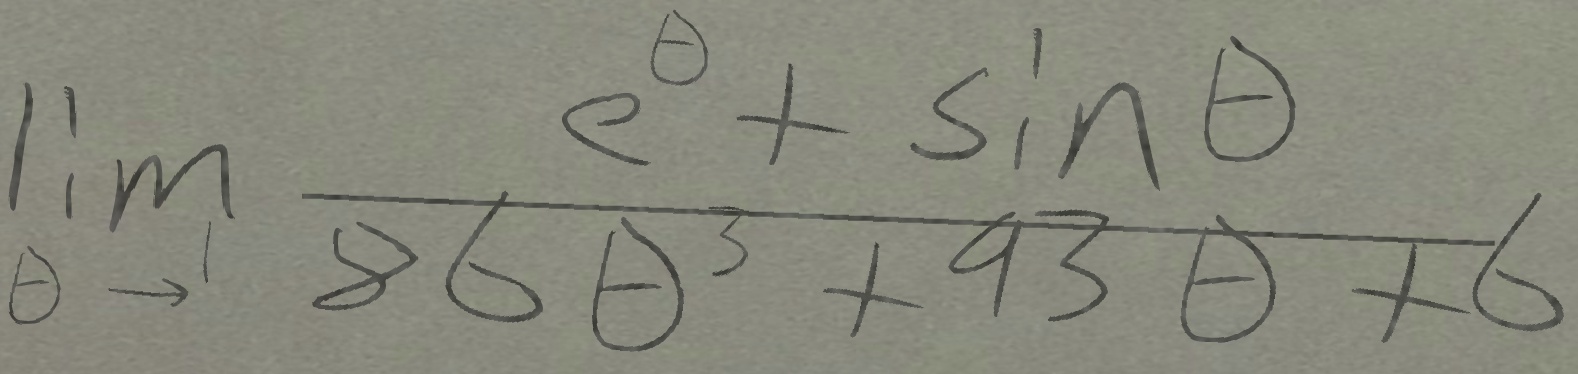 lim_{θ→1} \frac{e^θ + sinθ}{86θ^3 + 93θ + 6}